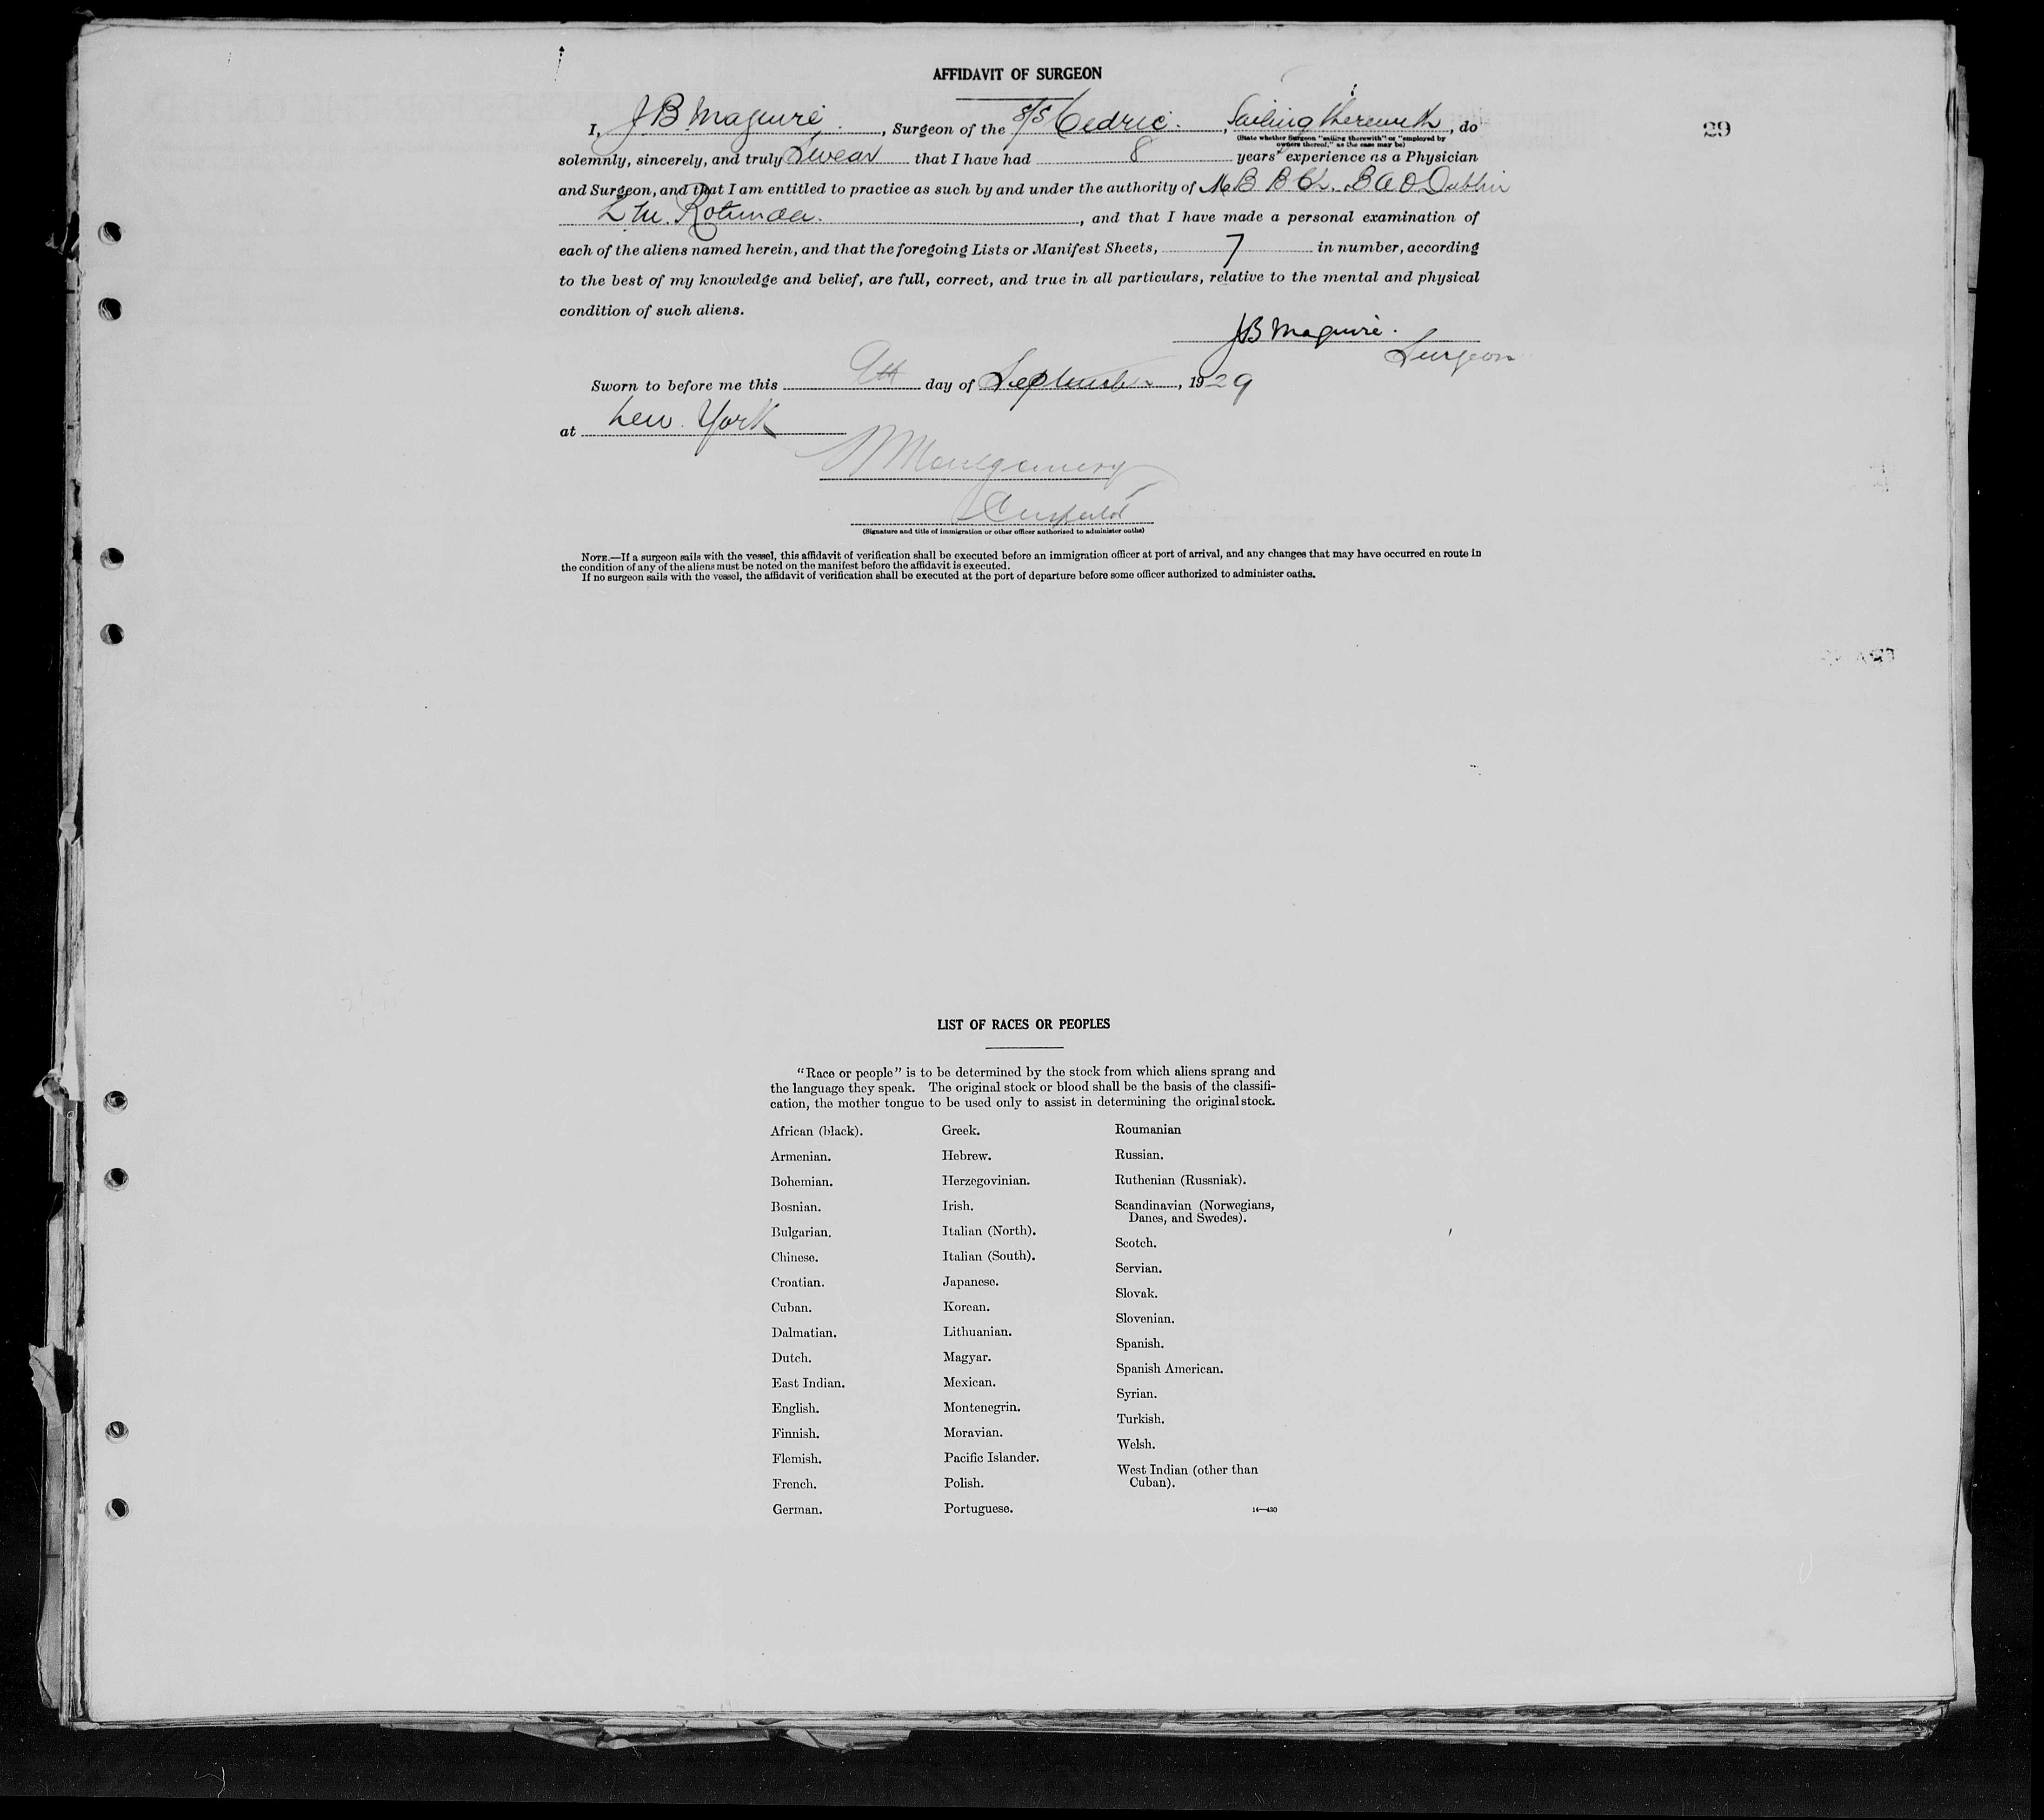 AFFIDAVIT OF SURGEON
I, J B Maguire, Surgeon of the S/S Cedric., Sailing therewith, do
29
(State whether Surgeon "sailing therewith" or "employed by
owners thereof," as the case may be)
solemnly, sincerely, and truly Swear that I have had 8 years' experience as a Physician
and Surgeon, and that I am entitled to practice as such by and under the authority of M B B Ch. B A O Dublin
L M. Rotunda., and that I have made a personal examination of
each of the aliens named herein, and that the foregoing Lists or Manifest Sheets, 7 in number, according
to the best of my knowledge and belief, are full, correct, and true in all particulars, relative to the mental and physical
condition of such aliens.
J B Maguire.
Surgeon
Sworn to before me this 9th day of September, 1929
at New York
Montgomery
(Signature and title of immigration or other officer authorized to administer oaths)
NOTE.—If a surgeon sails with the vessel, this affidavit of verification shall be executed before an immigration officer at port of arrival, and any changes that may have occurred en route in
the condition of any of the aliens must be noted on the manifest before the affidavit is executed.
If no surgeon sails with the vessel, the affidavit of verification shall be executed at the port of departure before some officer authorized to administer oaths.
LIST OF RACES OR PEOPLES
"Race or people" is to be determined by the stock from which aliens sprang and
the language they speak. The original stock or blood shall be the basis of the classifi-
cation, the mother tongue to be used only to assist in determining the original stock.
African (black).
Armenian.
Bohemian.
Bosnian.
Bulgarian.
Chinese.
Croatian.
Cuban.
Dalmatian.
Dutch.
East Indian.
English.
Finnish.
Flemish.
French.
German.
Greek.
Hebrew.
Herzegovinian.
Irish.
Italian (North).
Italian (South).
Japanese.
Korean.
Lithuanian.
Magyar.
Mexican.
Montenegrin.
Moravian.
Pacific Islander.
Polish.
Portuguese.
Roumanian
Russian.
Ruthenian (Russniak).
Scandinavian (Norwegians,
Danes, and Swedes).
Scotch.
Servian.
Slovak.
Slovenian.
Spanish.
Spanish American.
Syrian.
Turkish.
Welsh.
West Indian (other than
Cuban).
14—430